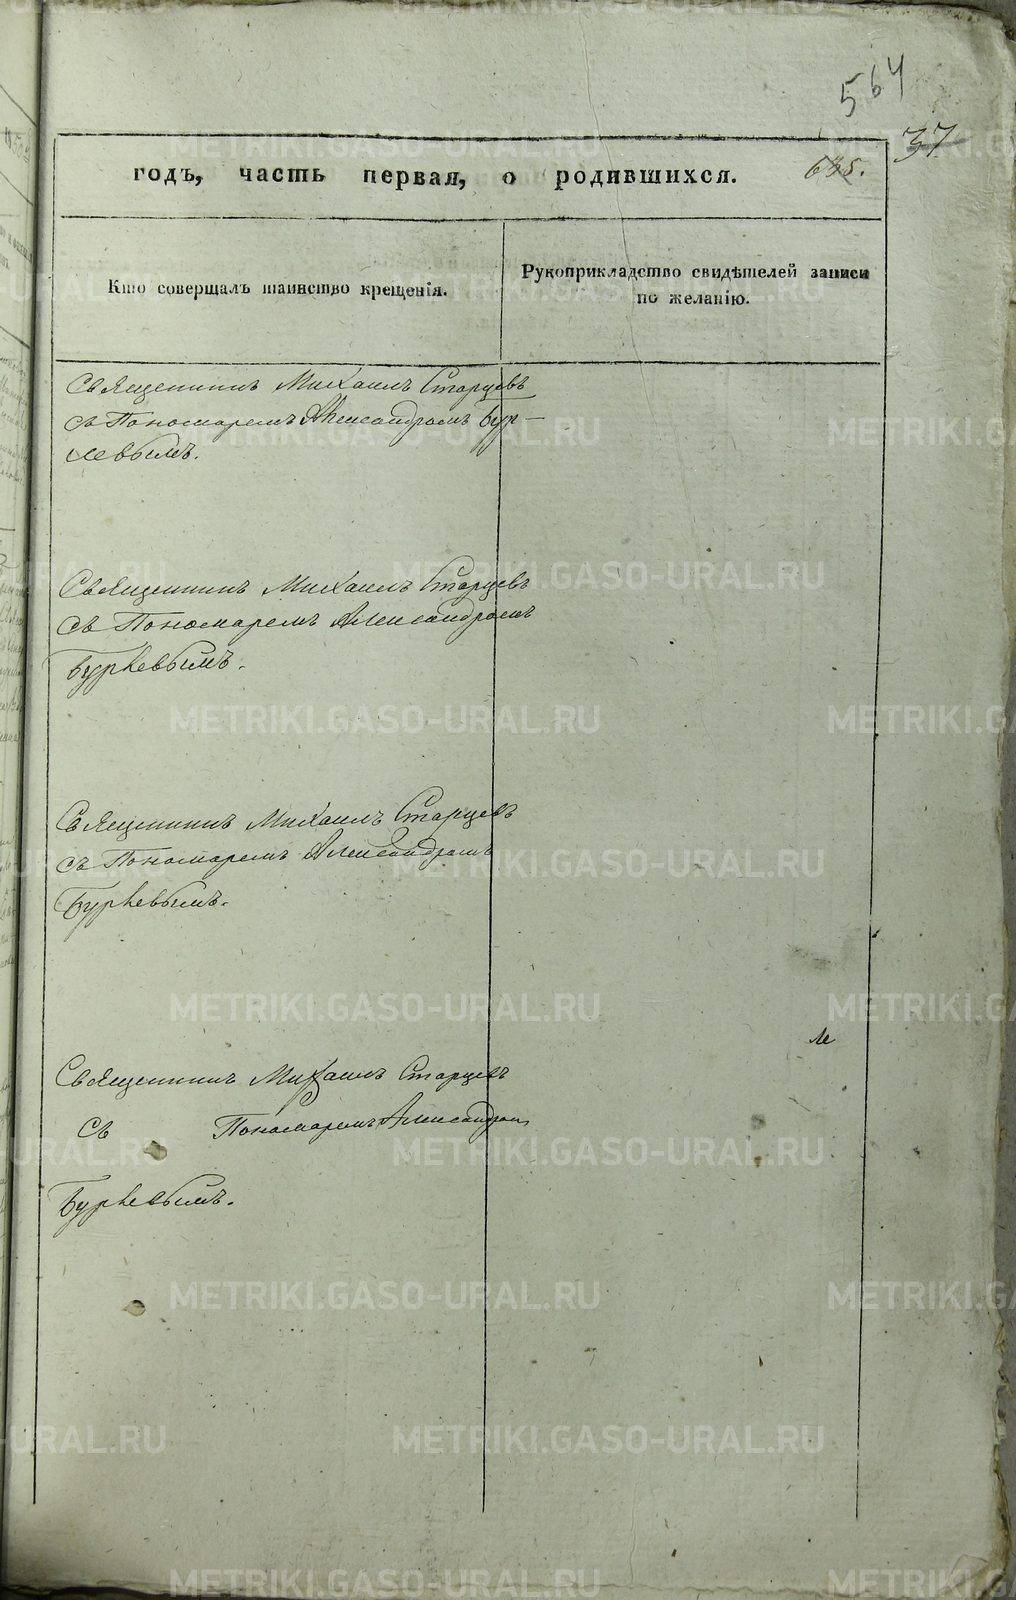 564
37
635.
годъ, часть первая, о родившихся.
Кто совершалъ таинство крещенія.
Рукоприкладство свидѣтелей записи
по желанію.
Священникъ Михаилъ Старцевъ
съ Пономаремъ Александромъ Бур-
левымъ.
Священникъ Михаилъ Старцевъ
съ Пономаремъ Александромъ
Бурлевымъ.
Священникъ Михаилъ Старцевъ
съ Пономаремъ Александромъ
Бурлевымъ.
Священникъ Михаилъ Старцевъ
съ Пономаремъ Александром
Бурлевымъ.
METRIKI.GASO-URAL.RU